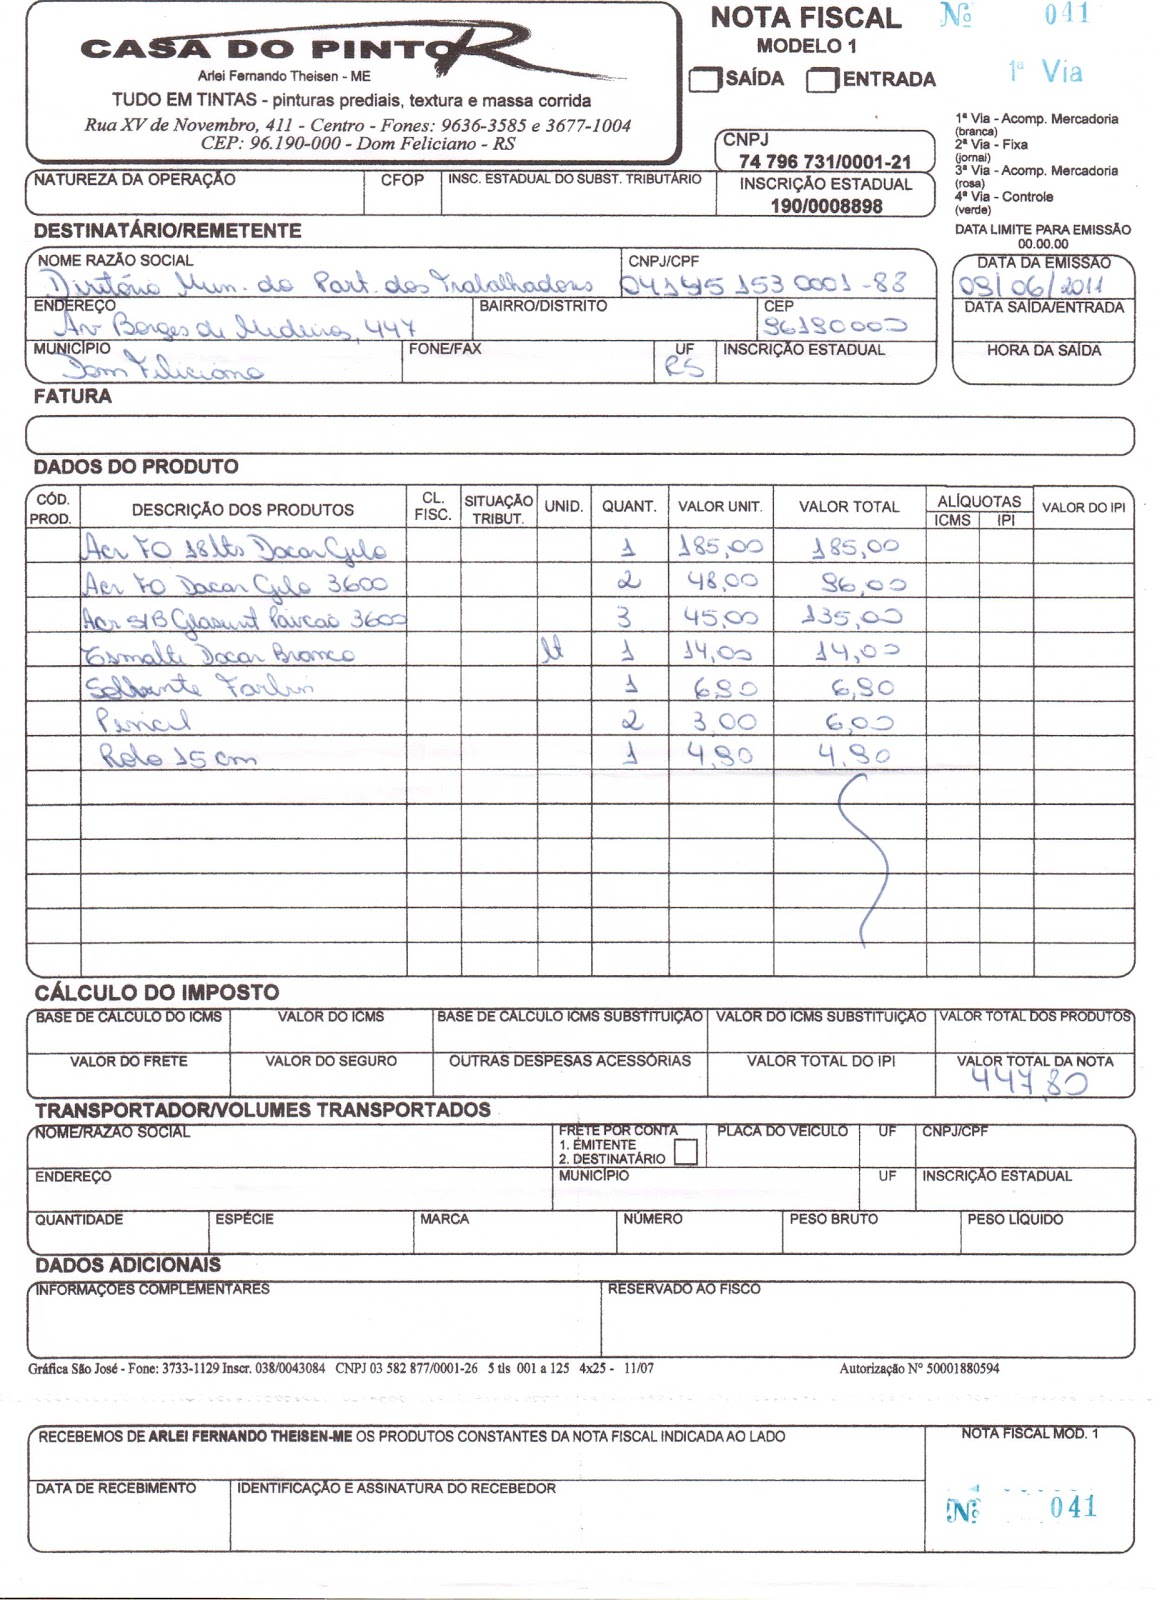 CASA DO PINTOR
Arlei Fernando Theisen - ME
TUDO EM TINTAS - pinturas prediais, textura e massa corrida
Rua XV de Novembro, 411 - Centro - Fones: 9636-3585 e 3677-1004
CEP: 96.190-000 - Dom Feliciano - RS
NOTA FISCAL Nº 041
MODELO 1
SAÍDA ENTRADA 1ª Via
CNPJ
74 796 731/0001-21
INSCRIÇÃO ESTADUAL
190/0008898
1ª Via - Acomp. Mercadoria
(branca)
2ª Via - Fixa
(jornal)
3ª Via - Acomp. Mercadoria
(rosa)
4ª Via - Controle
(verde)
DATA LIMITE PARA EMISSÃO
00.00.00
NATUREZA DA OPERAÇÃO CFOP INSC. ESTADUAL DO SUBST. TRIBUTÁRIO
DESTINATÁRIO/REMETENTE
NOME RAZÃO SOCIAL CNPJ/CPF DATA DA EMISSÃO
Diretório Mun. do Part. dos Trabalhadores 04145153 0001-83 09/06/2011
ENDEREÇO BAIRRO/DISTRITO CEP DATA SAÍDA/ENTRADA
Av Borges de Medeiros, 447 96190000
MUNICÍPIO FONE/FAX UF INSCRIÇÃO ESTADUAL HORA DA SAÍDA
Dom Feliciano RS
FATURA
DADOS DO PRODUTO
CÓD. PROD. DESCRIÇÃO DOS PRODUTOS CL. FISC. SITUAÇÃO TRIBUT. UNID. QUANT. VALOR UNIT. VALOR TOTAL ALÍQUOTAS ICMS IPI VALOR DO IPI
Acr FO 18lts Dacar Gelo 1 185,00 185,00
Acr FO Dacar Gelo 3600 2 48,00 96,00
Acr S/B Glasurit 3600 3 45,00 135,00
Esmalte Dacar Branco lt 1 14,00 14,00
Solvente Farben 1 6,90 6,90
Pincel 2 3,00 6,00
Rolo 15 cm 1 4,90 4,90
CÁLCULO DO IMPOSTO
BASE DE CÁLCULO DO ICMS VALOR DO ICMS BASE DE CÁLCULO ICMS SUBSTITUIÇÃO VALOR DO ICMS SUBSTITUIÇÃO VALOR TOTAL DOS PRODUTOS
VALOR DO FRETE VALOR DO SEGURO OUTRAS DESPESAS ACESSÓRIAS VALOR TOTAL DO IPI VALOR TOTAL DA NOTA
447,80
TRANSPORTADOR/VOLUMES TRANSPORTADOS
NOME/RAZÃO SOCIAL FRETE POR CONTA 1. EMITENTE 2. DESTINATÁRIO PLACA DO VEÍCULO UF CNPJ/CPF
ENDEREÇO MUNICÍPIO UF INSCRIÇÃO ESTADUAL
QUANTIDADE ESPÉCIE MARCA NÚMERO PESO BRUTO PESO LÍQUIDO
DADOS ADICIONAIS
INFORMAÇÕES COMPLEMENTARES RESERVADO AO FISCO
Gráfica São José - Fone: 3733-1129 Inscr. 038/0043084 CNPJ 03 582 877/0001-26 5 tls 001 a 125 4x25 - 11/07 Autorização Nº 50001880594
RECEBEMOS DE ARLEI FERNANDO THEISEN-ME OS PRODUTOS CONSTANTES DA NOTA FISCAL INDICADA AO LADO NOTA FISCAL MOD. 1
DATA DE RECEBIMENTO IDENTIFICAÇÃO E ASSINATURA DO RECEBEDOR
Nº 041